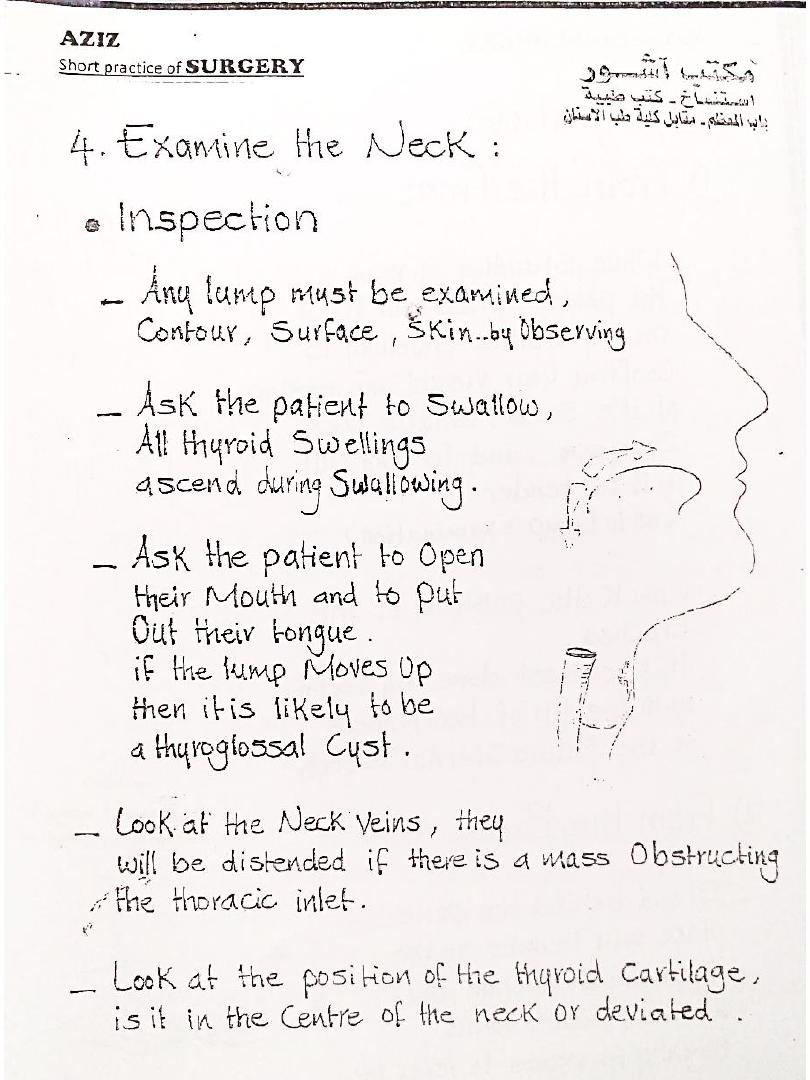 AZIZ
Short practice of SURGERY
مكتب آشور
استنساخ - كتب طبية
باب المعظم - مقابل كلية طب الاسنان
4. Examine the Neck :
• Inspection
– Any lump must be examined,
Contour, Surface, Skin..by Observing
– Ask the patient to Swallow,
All thyroid Swellings
ascend during Swallowing.
– Ask the patient to Open
their Mouth and to put
Out their tongue.
if the lump Moves Up
then it is likely to be
a thyroglossal Cyst.
– Look at the Neck Veins, they
will be distended if there is a mass Obstructing
the thoracic inlet.
– Look at the position of the thyroid Cartilage,
is it in the Centre of the neck or deviated.